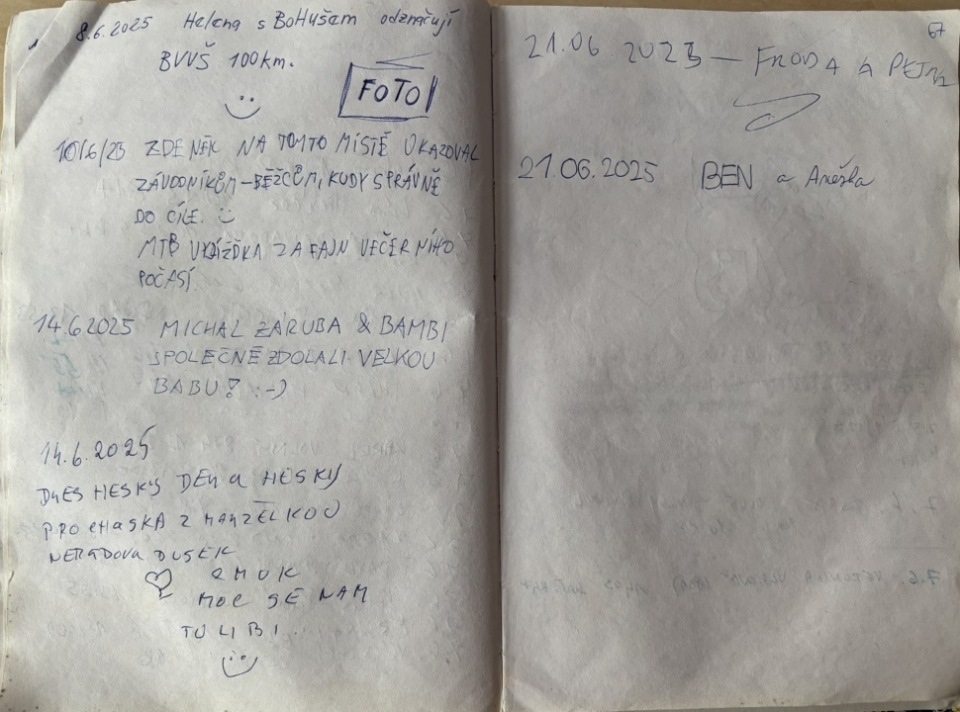 8.6.2025 Helena s BoHuŠem odznačují
BVVŠ 100km.
FOTO
10/6/25 ZDENĚK NA TOMTO MÍSTĚ UKAZOVAL
ZÁVODNÍKŮM-BĚŽCŮM, KUDY SPRÁVNĚ
DO CÍLE.
MTB VYJÍŽĎKA ZA FAJN VEČERNÍHO
POČASÍ
14.6.2025 MICHAL ZÁRUBA & BAMBI
SPOLEČNĚ ZDOLALI VELKOU
BABU! :-)
14.6.2025
DNES HESKÝ DEN a HESKÝ
PROCHaSKA Z MANZELKOU
DUSEK
MOC SE NAM
TU LIBI...
67
21.06 2025 – FRODA A PETRA
21.06.2025 BEN a Anežka